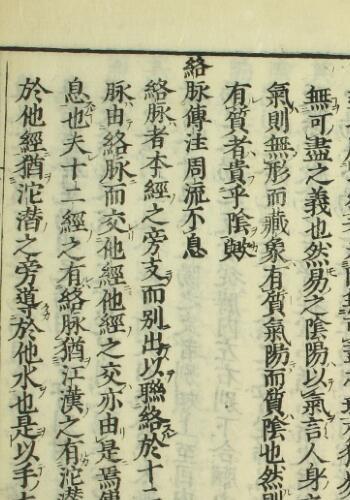 無可盡之義也然易之陰陽以氣言人身之
氣則無形而藏象有質氣陽而質陰也然則
有質者貴乎陰歟
絡脉傳注周流不息
絡脉者本經之旁支而別出以聯絡於十二
脉由絡脉而交他經他經之交亦由是焉傳
息也夫十二經之有絡脉猶江漢之有沱潛
於他經猶沱潛之旁導於他水也是以手